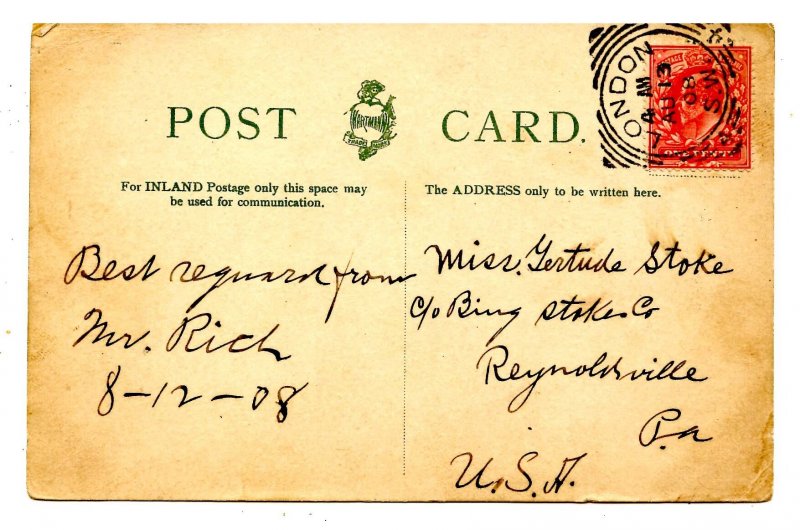 POST CARD.
HARTMANN
TRADE MARK
LONDON
AM
AU 13
08
For INLAND Postage only this space may
be used for communication.
The ADDRESS only to be written here.
Best reguard from
Mr. Rich
8-12-08
Miss. Gertude Stoke
c/o Bing Stoke Co
Reynoldsville
Pa
U.S.A.